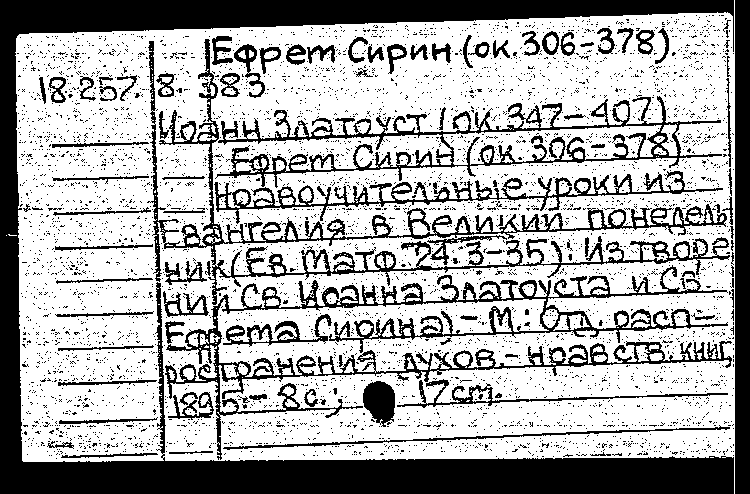 Ефрем Сирин (ок. 306-378).
18.257.8.383
Иоанн Златоуст (ок. 347-407)
Ефрем Сирин (ок. 306-378).
Нравоучительные уроки из
Евангелия в Великий понедель
ник (Ев. Матф. 24. 3-35): Из творе
ний Св. Иоанна Златоуста и Св.
Ефрема Сирина). - М.: Отд. расп-
ространения духов.-нравств. книг,
1895. - 8 с.; 17 cm.